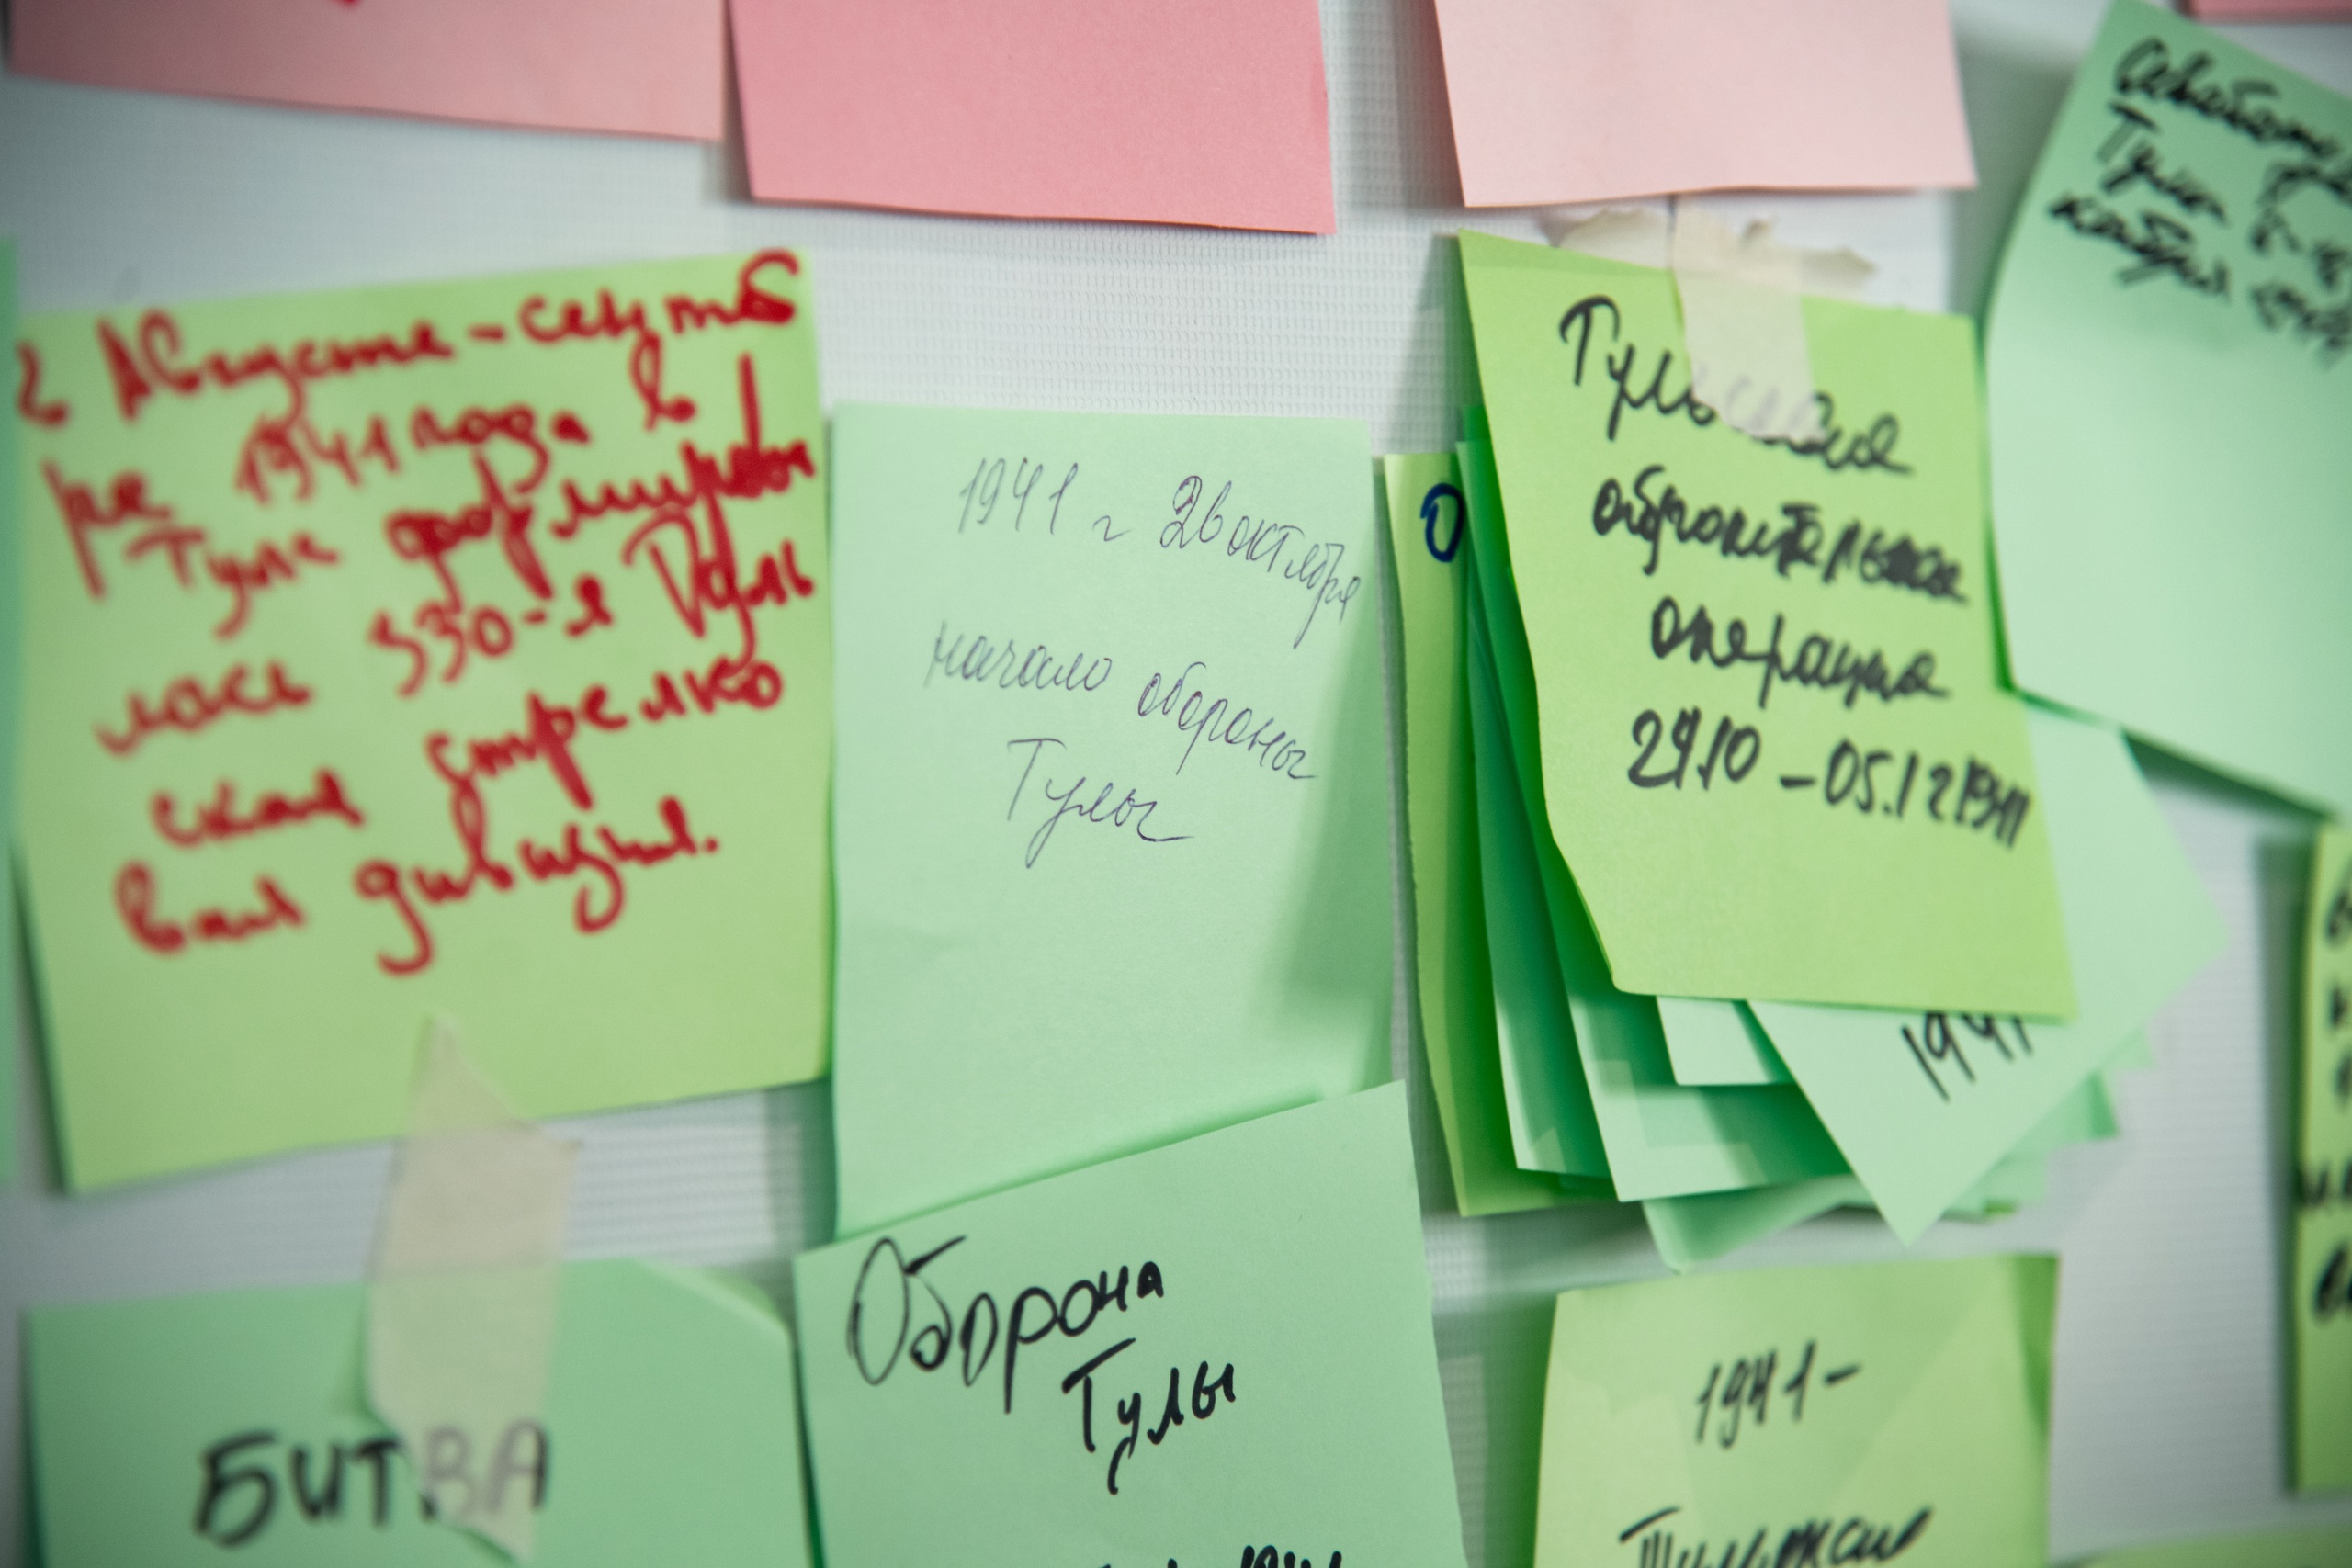 в Августе-сентяб
ре 1941 года в
Туле формирова
лась 330-я Туль
ская стрелко
вая дивизия.
1941 г 26 октября
начало обороны
Тулы
О
Тульская
оборонительная
операция
24.10 - 05.12 1941
1941
Туле
БИТВА
Оборона
Тулы
1941-